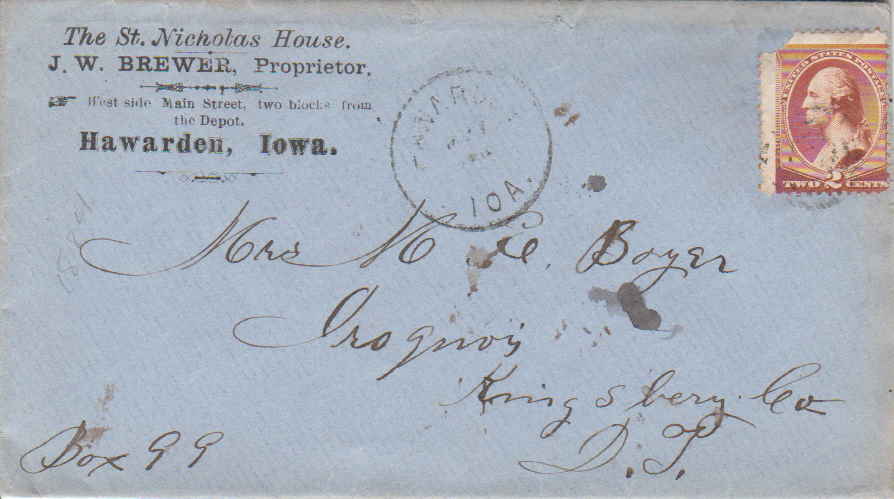 The St. Nicholas House.
J. W. BREWER, Proprietor.
West side Main Street, two blocks from
the Depot.
Hawarden, Iowa.
HAWARDEN
IOA.
UNITED STATES POSTAGE
TWO 2 CENTS
Mrs M. E. Boyer
Iroquois
Kingsbery Co
D. T.
Box 99